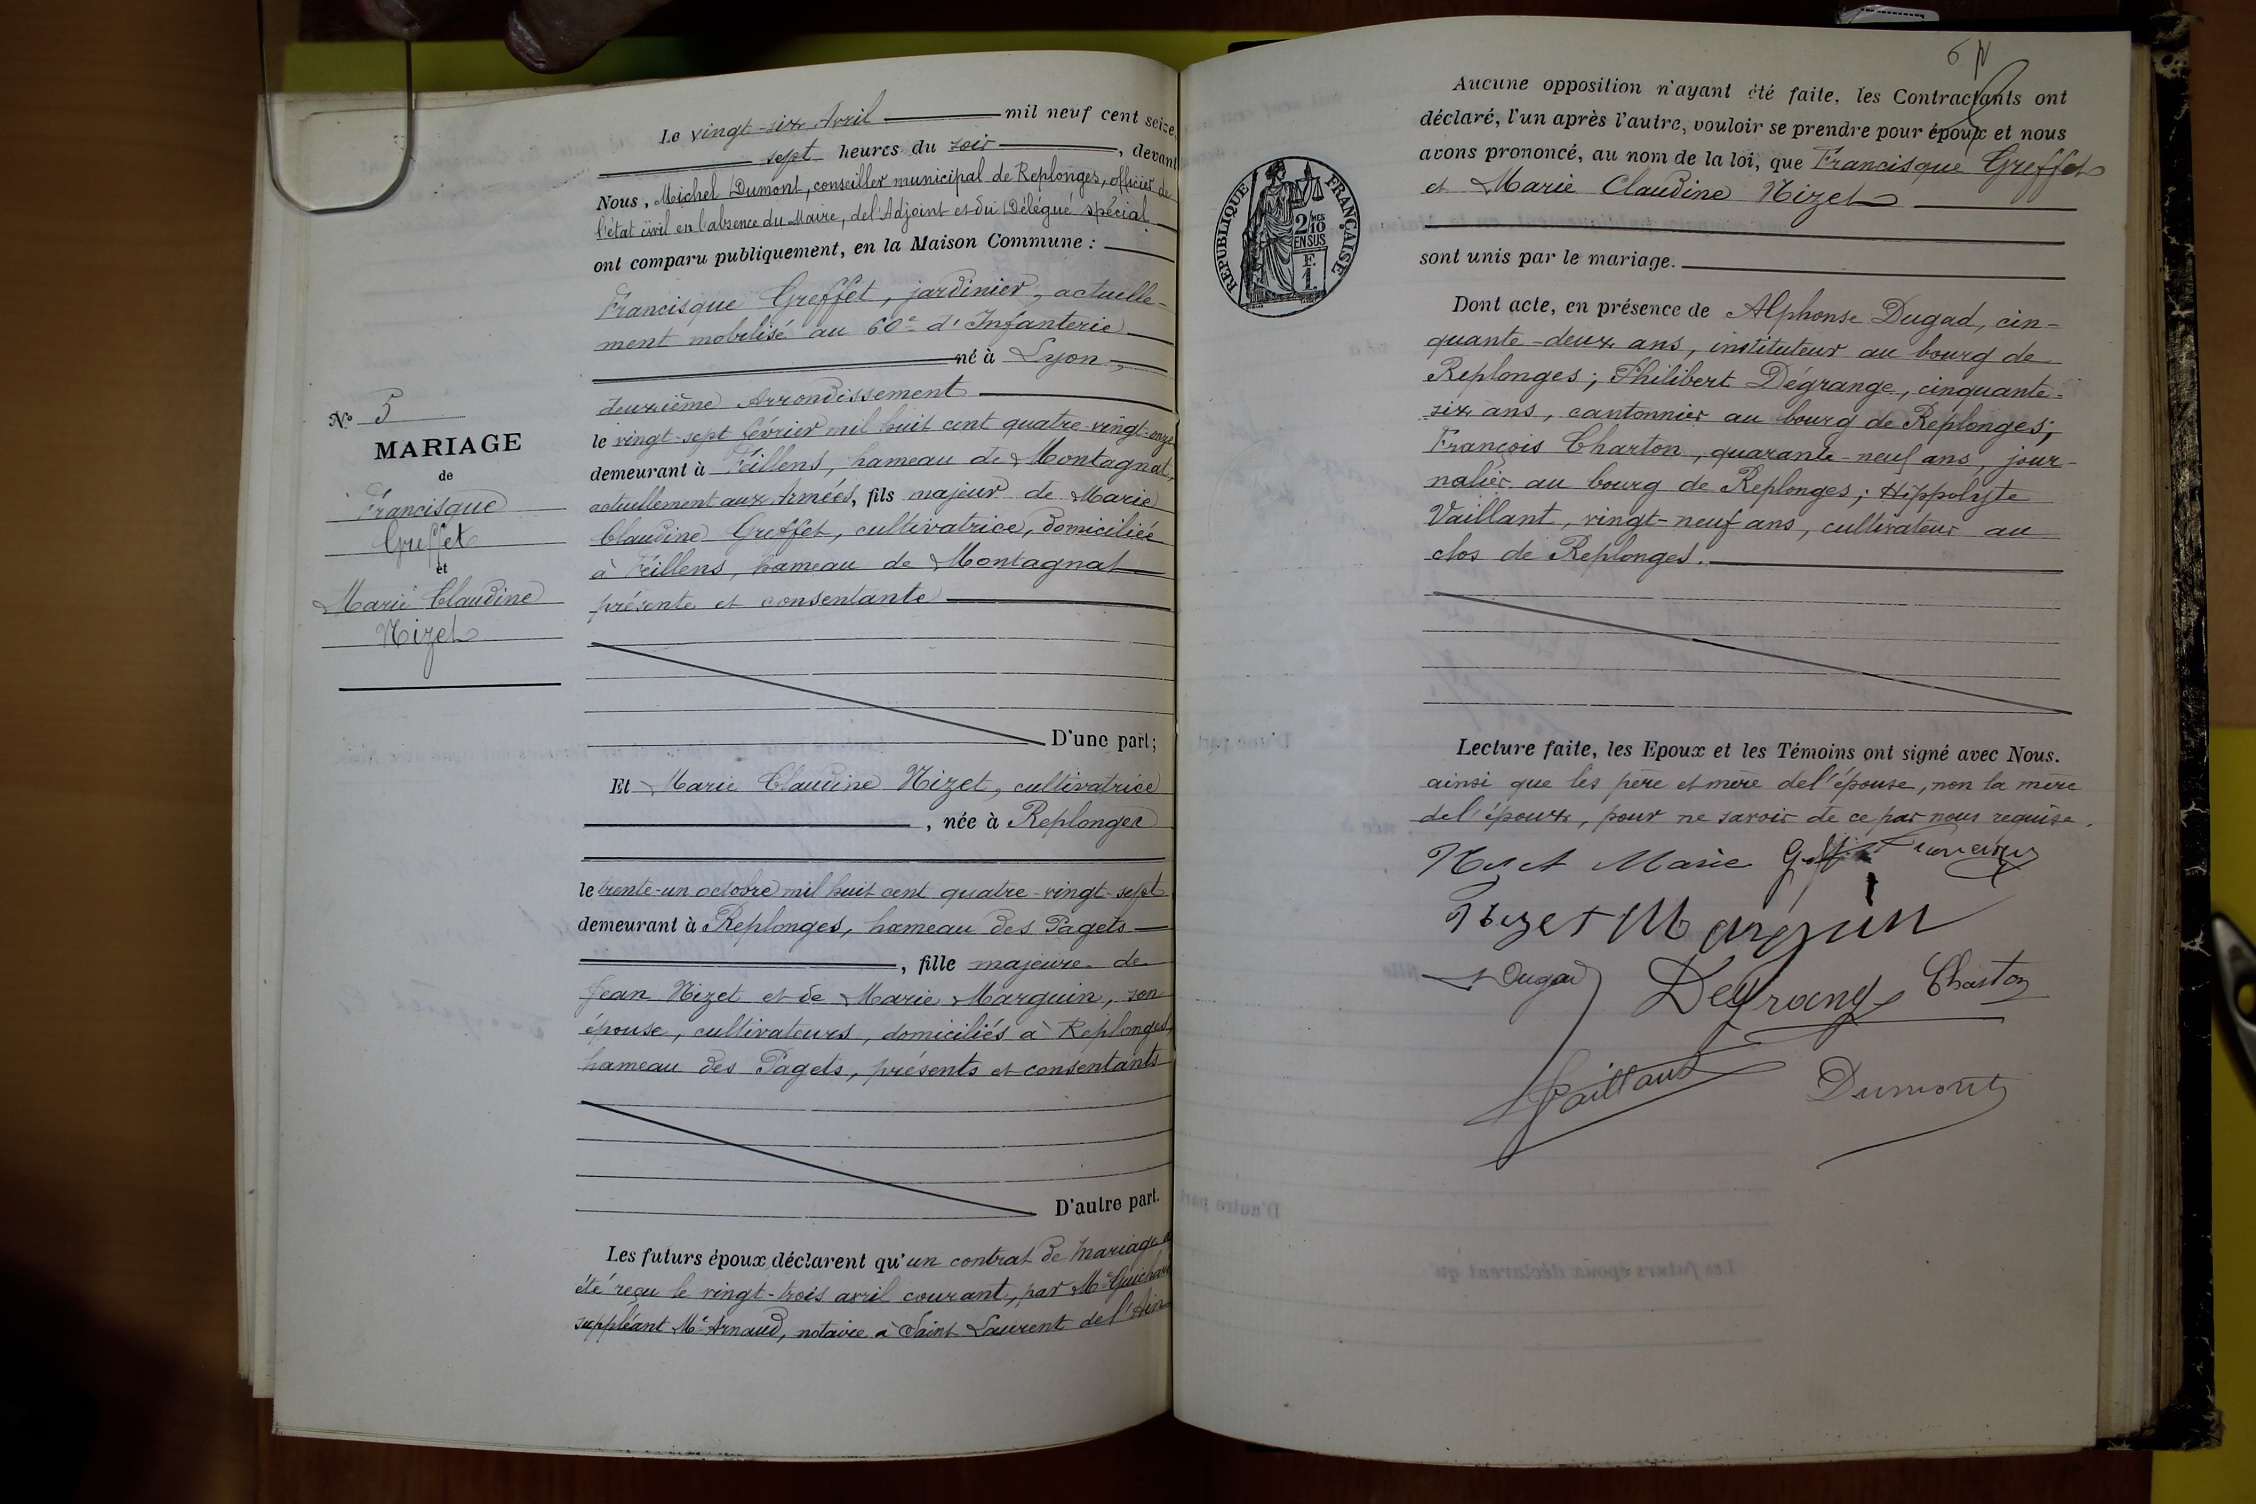 Le vingt-six Avril mil neuf cent seize,
sept heures du soir, devant
Nous, Michel Dumont, conseiller municipal de Replonges, officier de
l'état civil en l'absence du Maire, de l'Adjoint et du Délégué spécial
ont comparu publiquement, en la Maison Commune :
Francisque Greffet, jardinier, actuelle-
ment mobilisé au 60e d'Infanterie
né à Lyon,
deuxième Arrondissement
le vingt-sept février mil huit cent quatre-vingt-onze
demeurant à Feillens, hameau de Montagnat,
actuellement aux Armées, fils majeur de Marie
Claudine Greffet, cultivatrice, domiciliée
à Feillens, hameau de Montagnat
présente et consentante
D'une part;
Et Marie Claudine Nizet, cultivatrice
, née à Replonges
le trente-un octobre mil huit cent quatre-vingt-sept
demeurant à Replonges, hameau des Pagets
, fille majeure de
Jean Nizet et de Marie Marguin, son
épouse, cultivateurs, domiciliés à Replonges,
hameau des Pagets, présents et consentants
D'autre part.
Les futurs époux déclarent qu'un contrat de mariage a
été reçu le vingt-trois avril courant, par Me Guichard
suppléant Me Arnaud, notaire à Saint Laurent de l'Ain
No 5
MARIAGE
de
Francisque
Greffet
et
Marie Claudine
Nizet
6
Aucune opposition n'ayant été faite, les Contractants ont
déclaré, l'un après l'autre, vouloir se prendre pour époux et nous
avons prononcé, au nom de la loi, que Francisque Greffet
et Marie Claudine Nizet
sont unis par le mariage.
RÉPUBLIQUE FRANÇAISE
2/10MES
EN SUS
F.
1.
Dont acte, en présence de Alphonse Dugad, cin-
quante-deux ans, instituteur au bourg de
Replonges; Philibert Dégrange, cinquante-
six ans, cantonnier au bourg de Replonges;
François Charton, quarante-neuf ans, jour-
nalier au bourg de Replonges; Hippolyte
Vaillant, vingt-neuf ans, cultivateur au
clos de Replonges.
Lecture faite, les Epoux et les Témoins ont signé avec Nous.
ainsi que les père et mère de l'épouse, non la mère
de l'époux, pour ne savoir de ce par nous requise.
Nizet Marie
Nizet Marguin
Dugad Degrange Charton
Vaillant Dumont